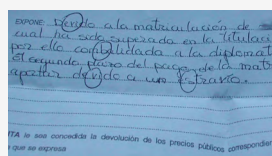 EXPONE: Debido a la matriculación de
cual ha sido superada en la titulaci
por ello combalidada a la diplomat
el segundo plazo del pago de la matr
apattar devido a un estravio.
TA le sea concedida la devolución de los precios públicos correspondien
que se expresa